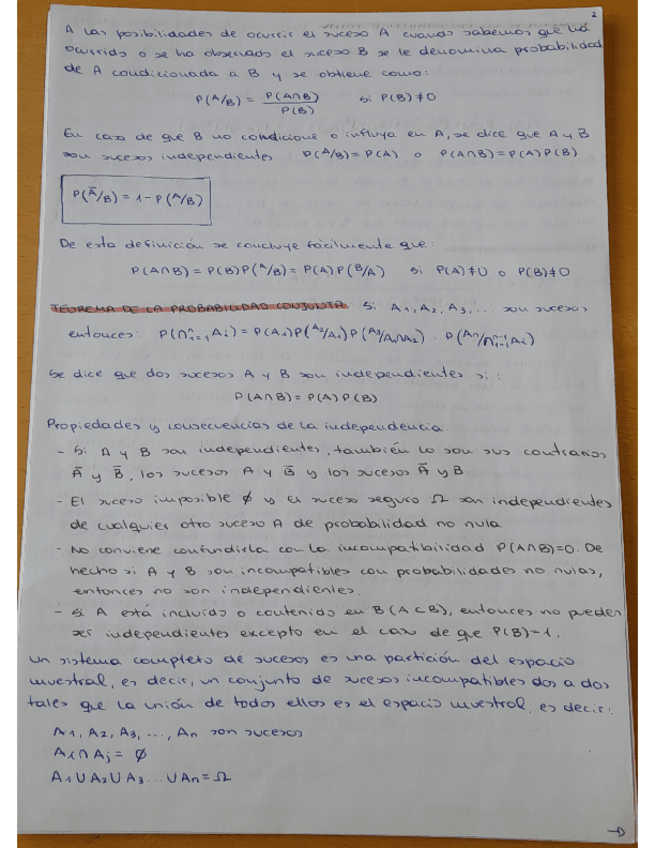 2
A las posibilidades de ocurrir el suceso A cuando sabemos que ha
ocurrido o se ha observado el suceso B se le denomina probabilidad
de A condicionada a B y se obtiene como:
P(A/B) = P(A∩B)/P(B) si P(B)≠0
En caso de que B no condicione o influya en A, se dice que A y B
son sucesos independientes P(A/B)=P(A) o P(A∩B)=P(A)P(B)
P(Ā/B) = 1-P(A/B)
De esta definición se concluye fácilmente que:
P(A∩B) = P(B)P(A/B) = P(A)P(B/A) si P(A)≠0 o P(B)≠0
TEOREMA DE LA PROBABILIDAD CONJUNTA. Si A₁, A₂, A₃, ... son sucesos,
entonces: P(∩ⁿᵢ₌₁ Aᵢ) = P(A₁)P(A₂/A₁)P(A₃/A₁∩A₂) . P(Aₙ/∩ⁿ⁻¹ᵢ₌₁ Aᵢ)
Se dice que dos sucesos A y B son independientes si:
P(A∩B) = P(A)P(B)
Propiedades y consecuencias de la independencia
- Si A y B son independientes, también lo son sus contrarios
Ā y B̄, los sucesos A y B̄ y los sucesos Ā y B.
- El suceso imposible ∅ y el suceso seguro Ω son independientes
de cualquier otro suceso A de probabilidad no nula
- No conviene confundirla con la incompatibilidad P(A∩B)=0. De
hecho si A y B son incompatibles con probabilidades no nulas,
entonces no son independientes.
- Si A está incluido o contenido en B (A⊂B), entonces no pueden
ser independientes excepto en el caso de que P(B)=1.
Un sistema completo de sucesos es una partición del espacio
muestral, es decir, un conjunto de sucesos incompatibles dos a dos
tales que la unión de todos ellos es el espacio muestral, es decir:
A₁, A₂, A₃, ..., Aₙ son sucesos
Aᵢ∩Aⱼ = ∅
A₁∪A₂∪A₃...∪Aₙ = Ω